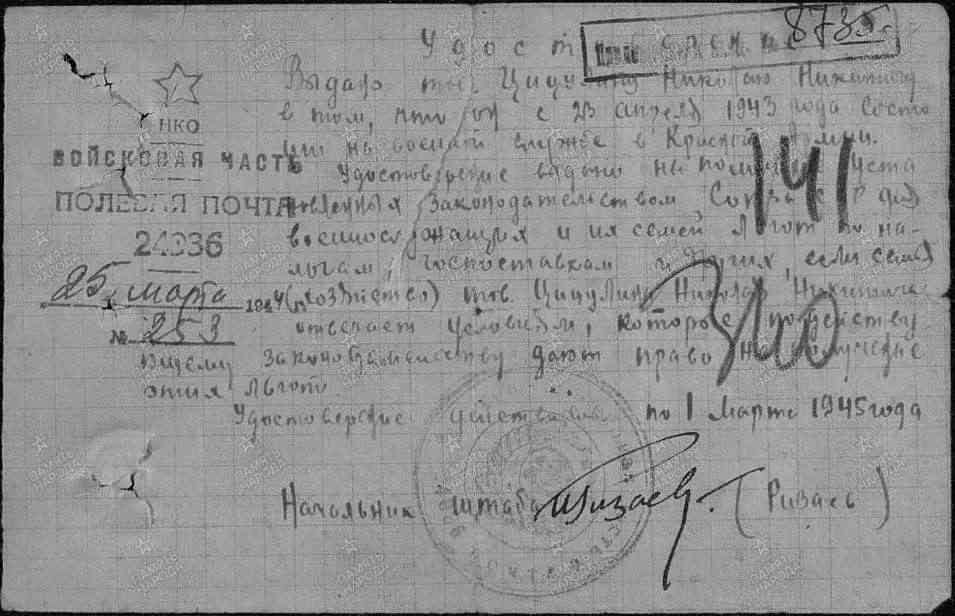 Удост
8735.
Выдано тов. Цицулину Николаю Никитичу
в том, что он с 23 апреля 1943 года состо
ит на военной службе в Красной Армии.
НКО
ВОЙСКОВАЯ ЧАСТЬ
ПОЛЕВАЯ ПОЧТА
24036
25 марта 1944
№ 253
141
Удостоверение выдано на уста
новленных законодательством Союза ССР для
военнослужащих и их семей льгот по на-
логам, госпоставкам и других, если семья
(хозяйство) тов. Цицулина Николая Никитича
отвечает условиям, которые по действу
ющему законодательству дают право на получение
этих льгот
Удостоверение действительно по 1 марта 1945 года
Начальник штаба (Ризаев)